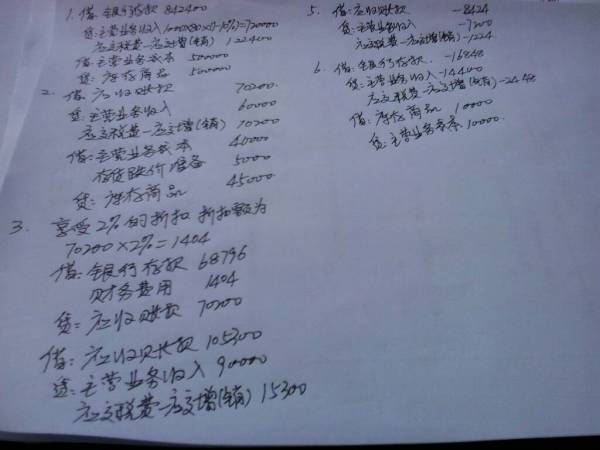 1. 借: 银行存款 842400
贷: 主营业务收入 10000×80×(1-10%)=720000
应交税费—应交增(销) 122400
借: 主营业务成本 500000
贷: 库存商品 500000
2. 借: 应收账款 70200
贷: 主营业务收入 60000
应交税费—应交增(销) 10200
借: 主营业务成本 40000
存货跌价准备 5000
贷: 库存商品 45000
3. 享受2%的折扣 折扣额为
70200×2%=1404
借: 银行存款 68796
财务费用 1404
贷: 应收账款 70200
借: 应收账款 105300
贷: 主营业务收入 90000
应交税费—应交增(销) 15300
5. 借: 应收账款 -8424
贷: 主营业务收入 -7200
应交税费—应交增(销) -1224
6. 借: 银行存款 -16848
贷: 主营业务收入 -14400
应交税费—应交增(销) -2448
借: 库存商品 10000
贷: 主营业务成本 10000.